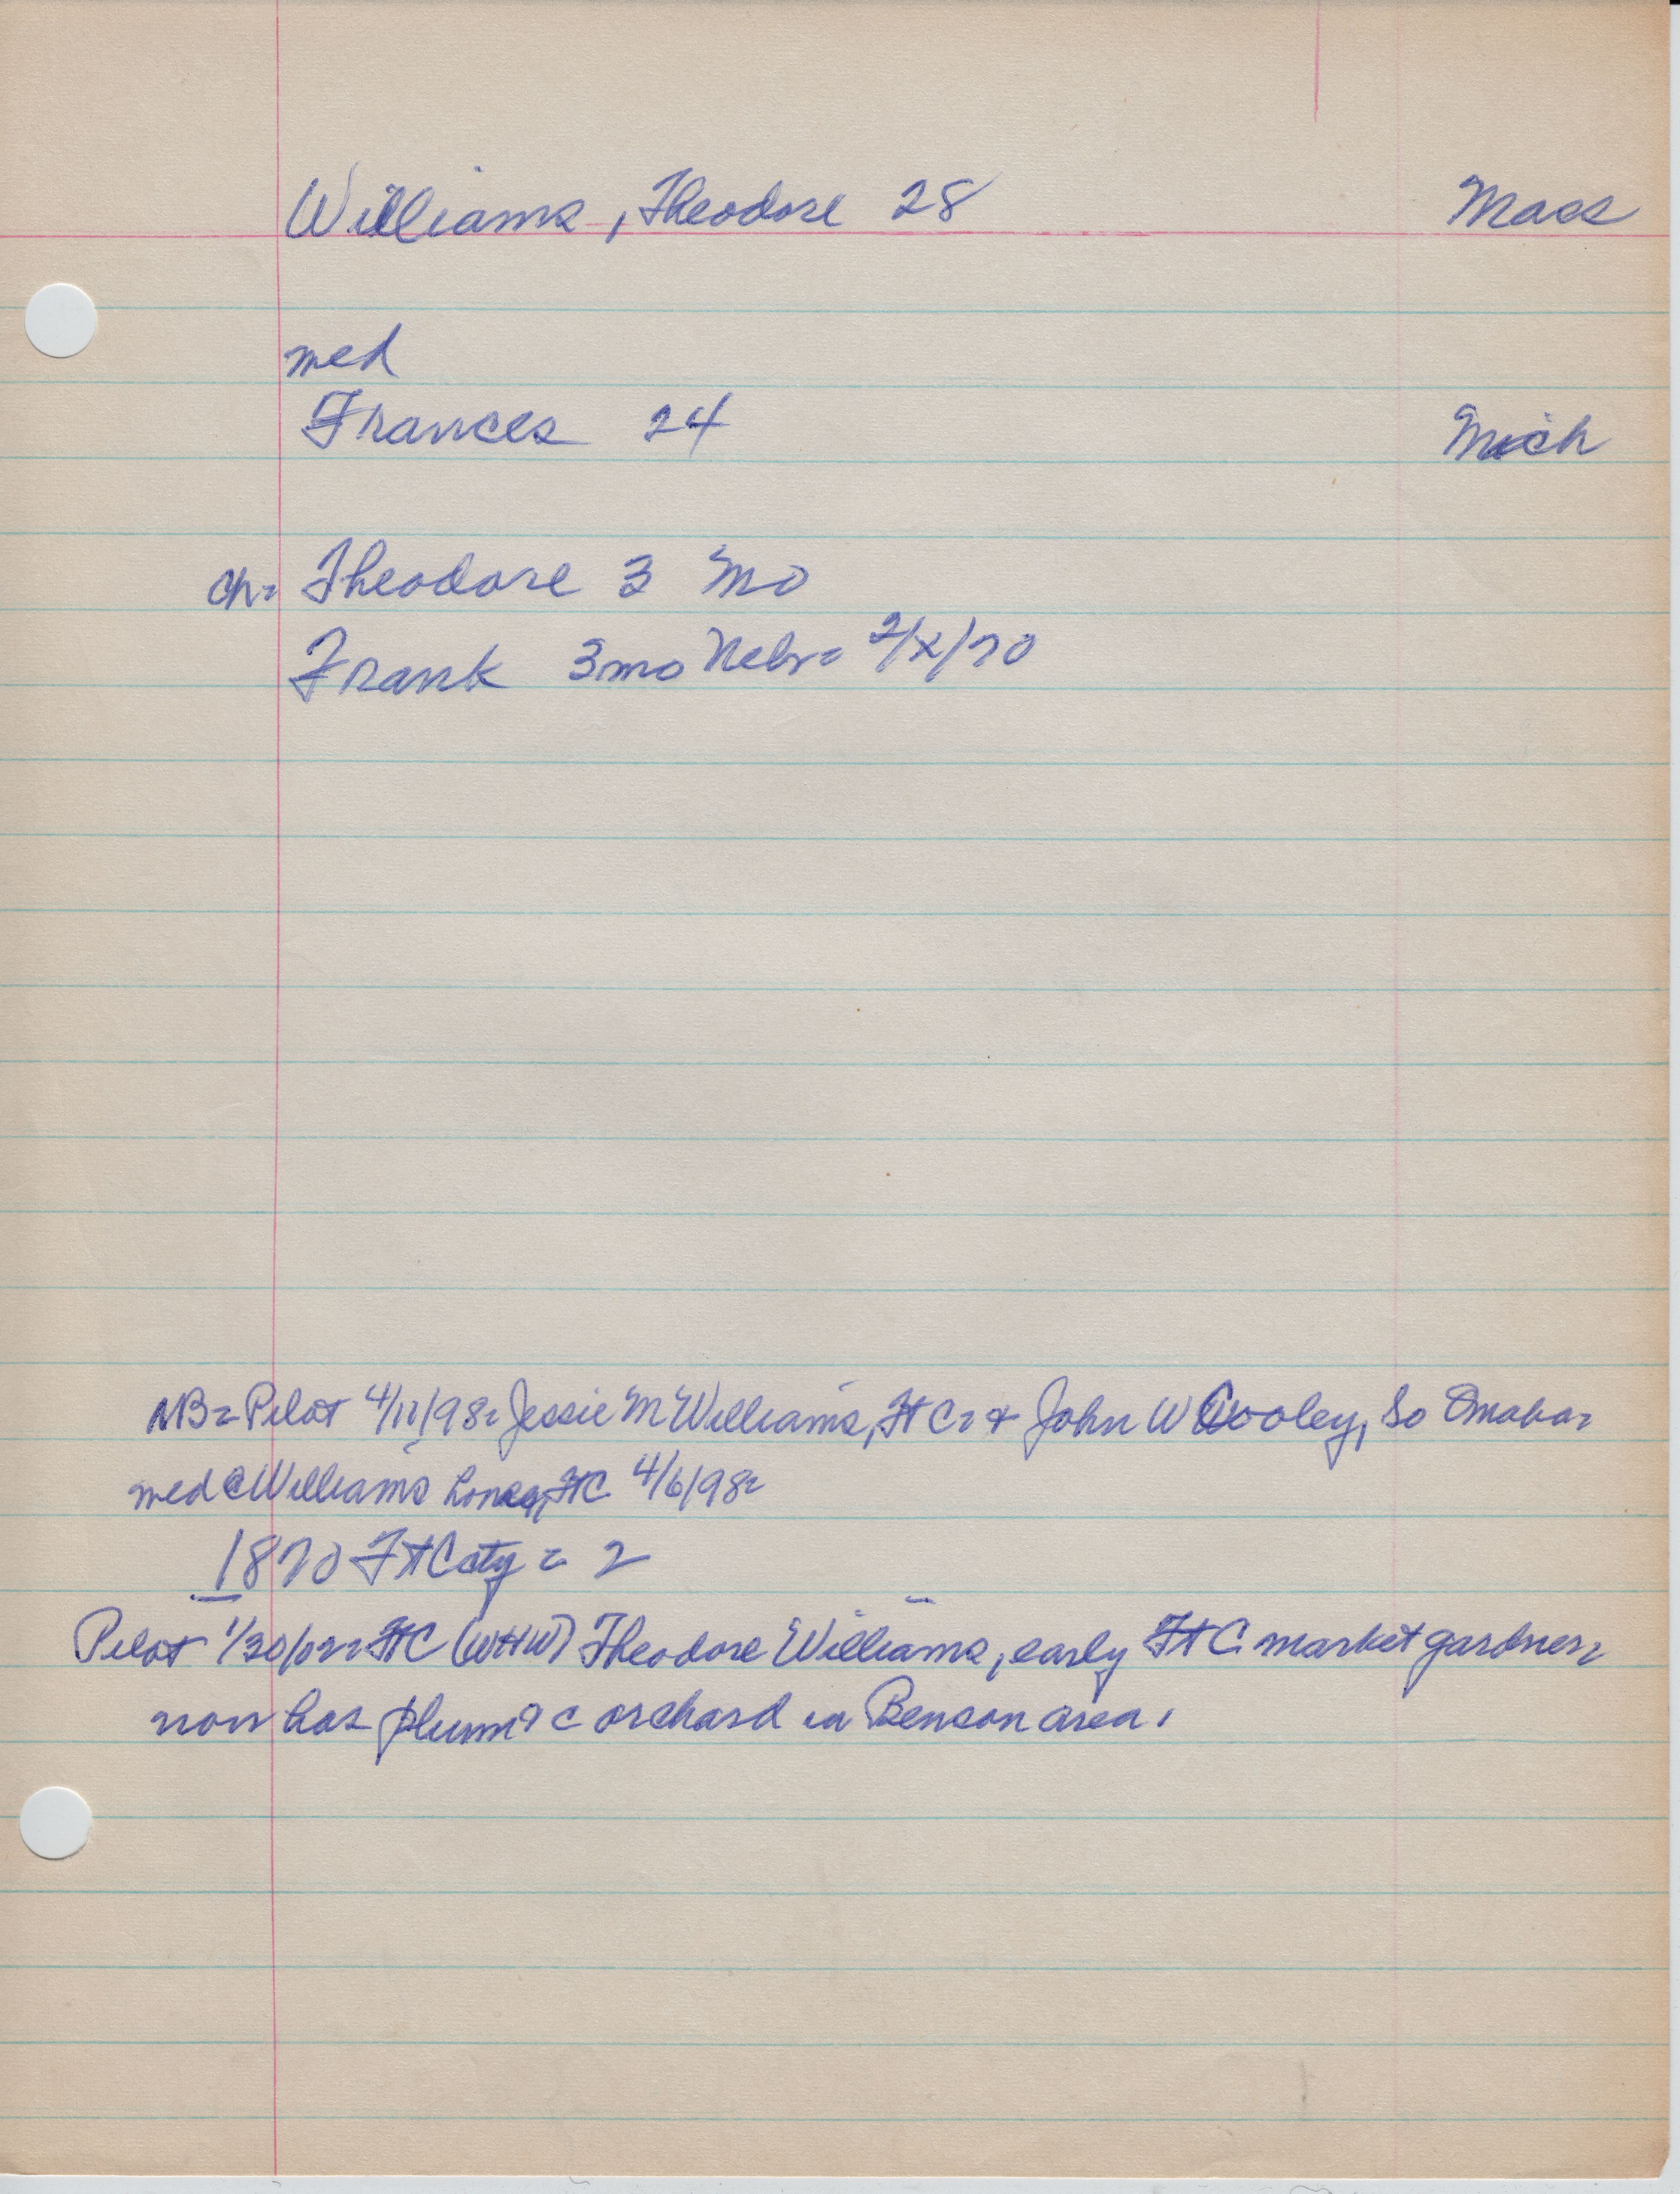 Williams, Theodore 28 Mass
med
Frances 24 Mich
ch= Theodore 3 Mo
Frank 3mo Nebr= 2/x/70
NB= Pilot 4/11/98= Jessie M Williams, Ft C= & John W Cooley, So Omaha=
med @ Williams home, Ft C 4/6/98=
1870 Ft C cty = 2
Pilot 1/30/02= Ft C (WHW) Theodore Williams, early Ft C market gardner,
now has plum &c orchard in Benson area.